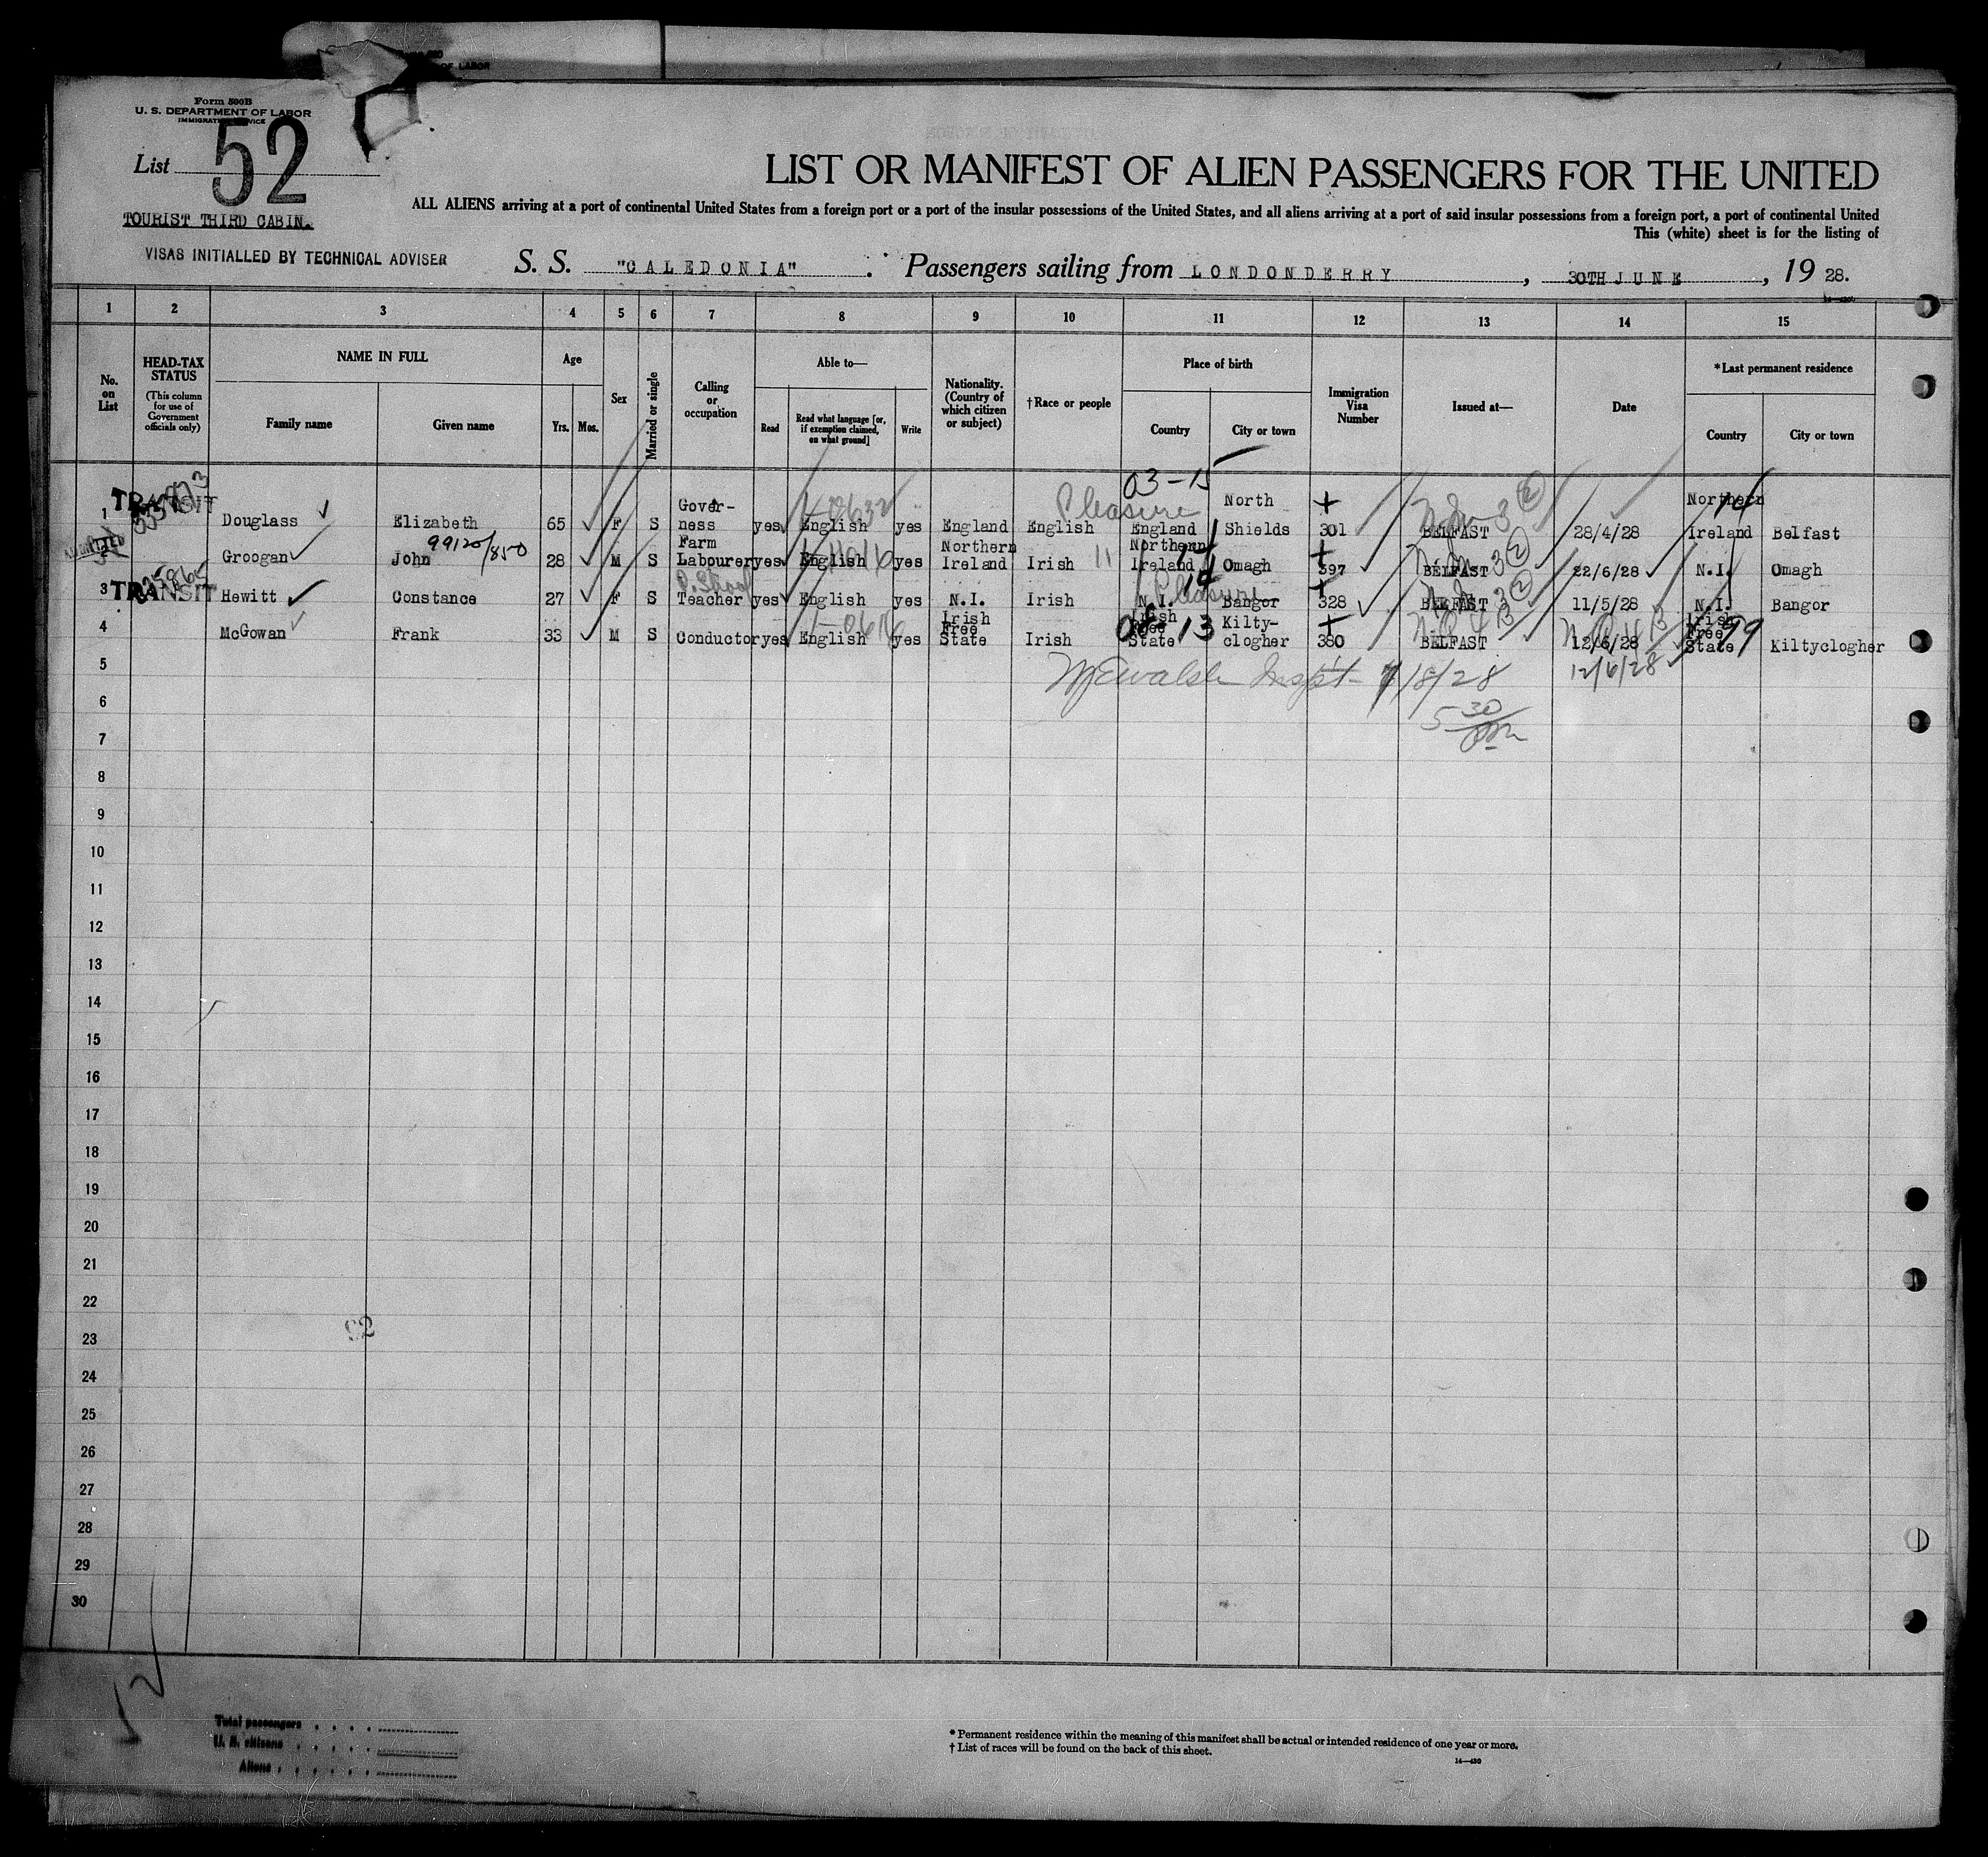 Form 500B
U. S. DEPARTMENT OF LABOR
IMMIGRATION SERVICE
OF LABOR
List 52
TOURIST THIRD CABIN.
VISAS INITIALLED BY TECHNICAL ADVISER
LIST OR MANIFEST OF ALIEN PASSENGERS FOR THE UNITED
ALL ALIENS arriving at a port of continental United States from a foreign port or a port of the insular possessions of the United States, and all aliens arriving at a port of said insular possessions from a foreign port, a port of continental United
This (white) sheet is for the listing of
S. S. "CALEDONIA" . Passengers sailing from LONDONDERRY , 30TH JUNE , 19 28.
1 2 3 4 5 6 7 8 9 10 11 12 13 14 15
No. on List
HEAD-TAX STATUS (This column for use of Government officials only)
NAME IN FULL
Family name Given name
Age
Yrs. Mos.
Sex
Married or single
Calling or occupation
Able to—
Read
Read what language [or, if exemption claimed, on what ground]
Write
Nationality. (Country of which citizen or subject)
†Race or people
Place of birth
Country City or town
Immigration Visa Number
Issued at—
Date
*Last permanent residence
Country City or town
03-15
Pleasure
1 TRANSIT Douglass Elizabeth 65 F S Governess yes English yes England English England North Shields 301 BELFAST 28/4/28 Northern Ireland Belfast
99120/850
2 Groogan John 28 M S Farm Labourer yes English yes Northern Ireland Irish Northern Ireland Omagh 397 BELFAST 22/6/28 N.I. Omagh
Pleasure
3 TRANSIT Hewitt Constance 27 F S Teacher yes English yes N.I. Irish N.I. Bangor 328 BELFAST 11/5/28 N.I. Bangor
4 McGowan Frank 33 M S Conductor yes English yes Irish Free State Irish Irish Free State Kiltyclogher 380 BELFAST 12/6/28 Irish Free State 99 Kiltyclogher
5 12/6/28
7/8/28
6
5 30
7
8
9
10
11
12
13
14
15
16
17
18
19
20
21
22
23
24
25
26
27
28
29
30
Total passengers
U. S. citizens
Aliens
* Permanent residence within the meaning of this manifest shall be actual or intended residence of one year or more.
† List of races will be found on the back of this sheet.
14—430